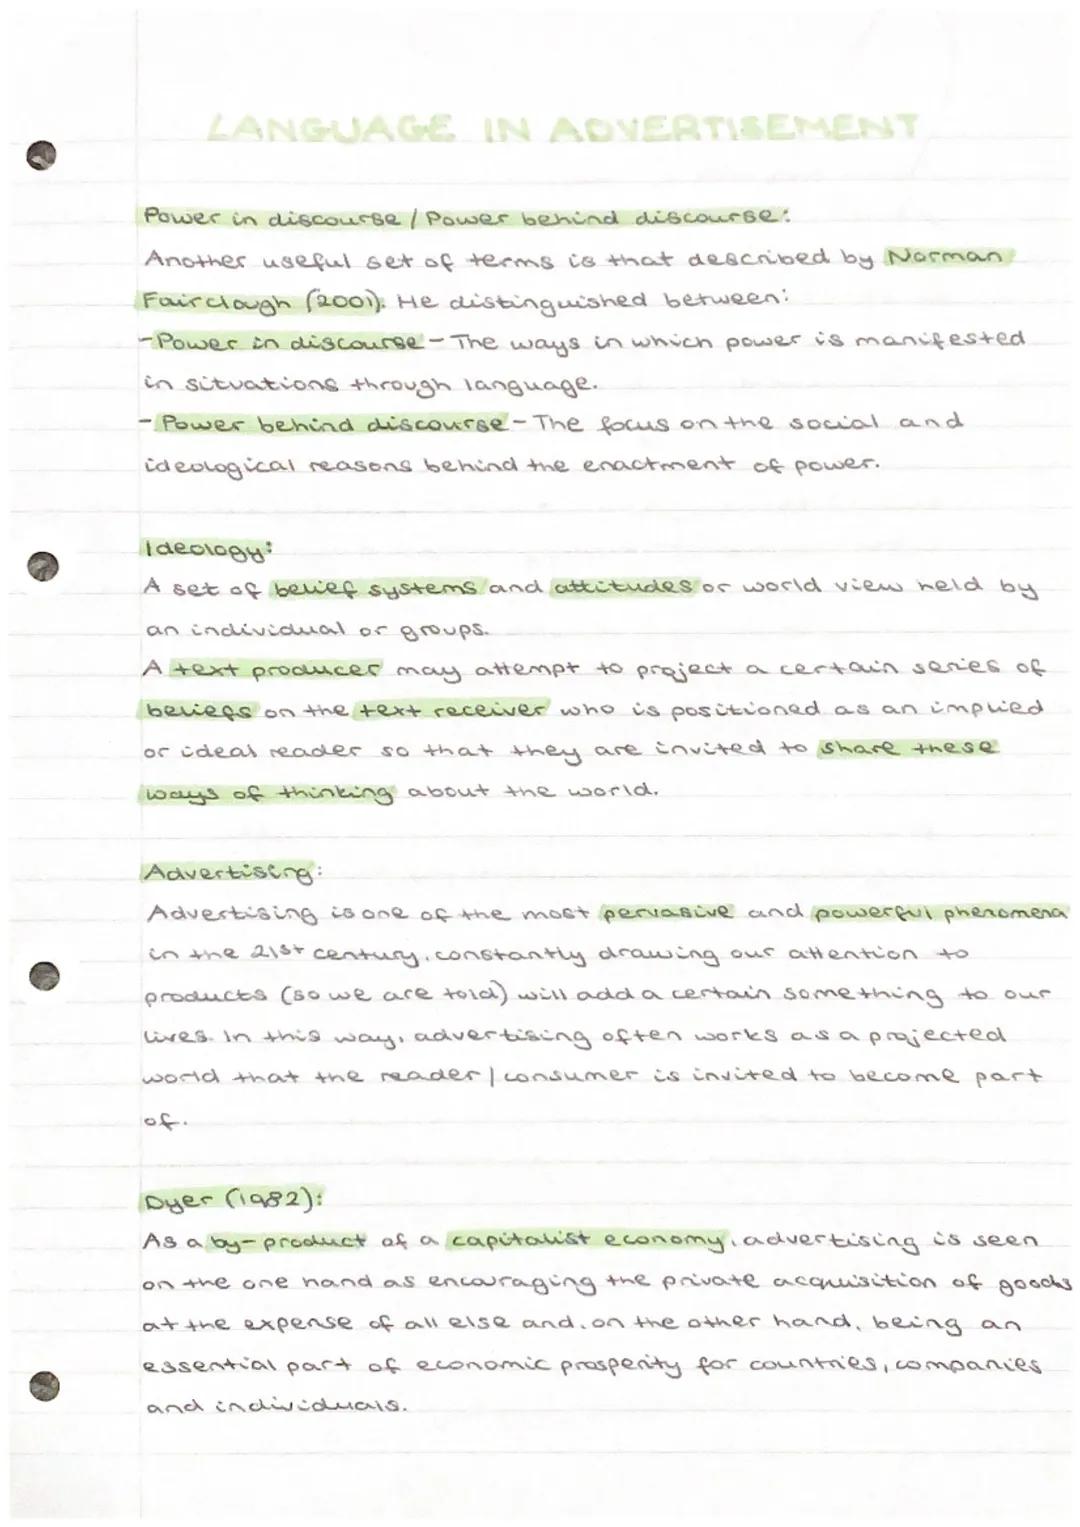 LANGUAGE IN ADVERTISEMENT
Power in discourse / Power behind discourse:
Another useful set of terms is that described by Norman
Fairclough (2001). He distinguished between:
- Power in discourse - The ways in which power is manifested
in situations through language.
- Power behind discourse - The focus on the social and
ideological reasons behind the enactment of power.
Ideology:
A set of belief systems and attitudes or world view held by
an individual or groups.
A text producer may attempt to project a certain series of
beliefs on the text receiver who is positioned as an implied
or ideal reader so that they are invited to share these
ways of thinking about the world.
Advertising:
Advertising is one of the most pervasive and powerful phenomena
in the 21st century, constantly drawing our attention to
products (so we are told) will add a certain something to our
lives. In this way, advertising often works as a projected
world that the reader / consumer is invited to become part
of.
Dyer (1982):
As a by-product of a capitalist economy, advertising is seen
on the one hand as encouraging the private acquisition of goods
at the expense of all else and, on the other hand, being an
essential part of economic prosperity for countries, companies
and individuals.